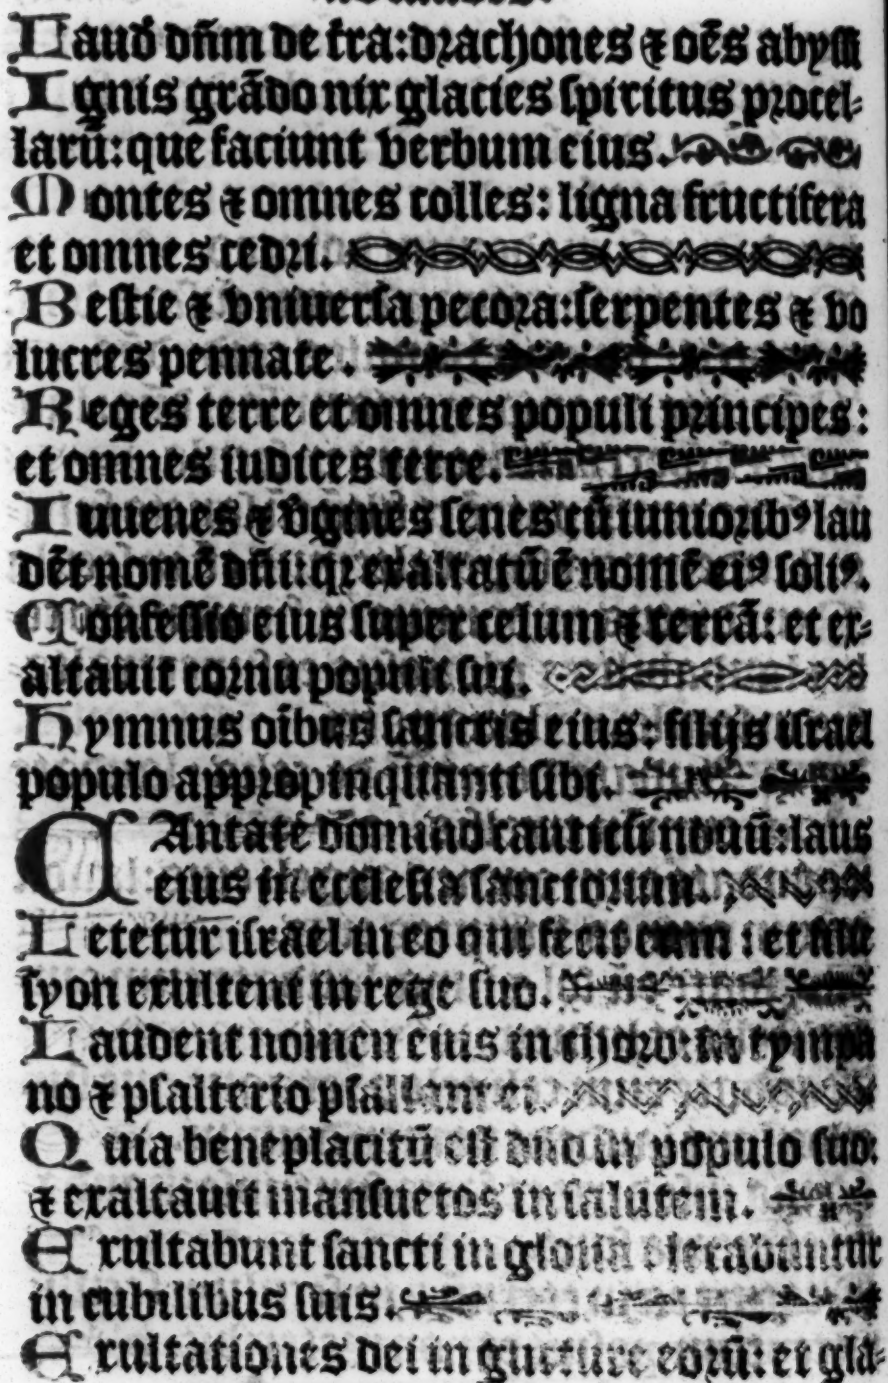 Laud̃ dñm de tra: drachones ⁊ oẽs abyssi
Ignis grãdo nix glacies spiritus procel⸗
larũ: que faciunt verbum eius.
Montes ⁊ omnes colles: ligna fructifera
et omnes cedri.
Bestie ⁊ vniuersa pecora: serpentes ⁊ vo
lucres pennate.
Reges terre et omnes populi principes:
et omnes iudices terre.
Iuuenes ⁊ v̾gines senes cũ iuniorib⁹ lau
dẽt nomẽ dñi: qr exaltatũ ẽ nomẽ ei⁹ soli⁹.
Confessio eius super celum ⁊ terrã: et ex⸗
altauit cornu populi sui.
Hymnus oĩbus sanctis eius: filijs israel
populo appropinquanti sibi.
CAntate domino canticũ nouũ: laus
eius in ecclesia sanctorum.
Letetur israel in eo qui fecit eum: et filie
syon exultent in rege suo.
Laudent nomen eius in choro: in tympa
no ⁊ psalterio psallant ei.
Quia beneplacitũ est dño in populo suo:
⁊ exaltauit mansuetos in salutem.
Exultabunt sancti in gloria letabuntur
in cubilibus suis.
Exultationes dei in gutture eorũ: et gla⸗